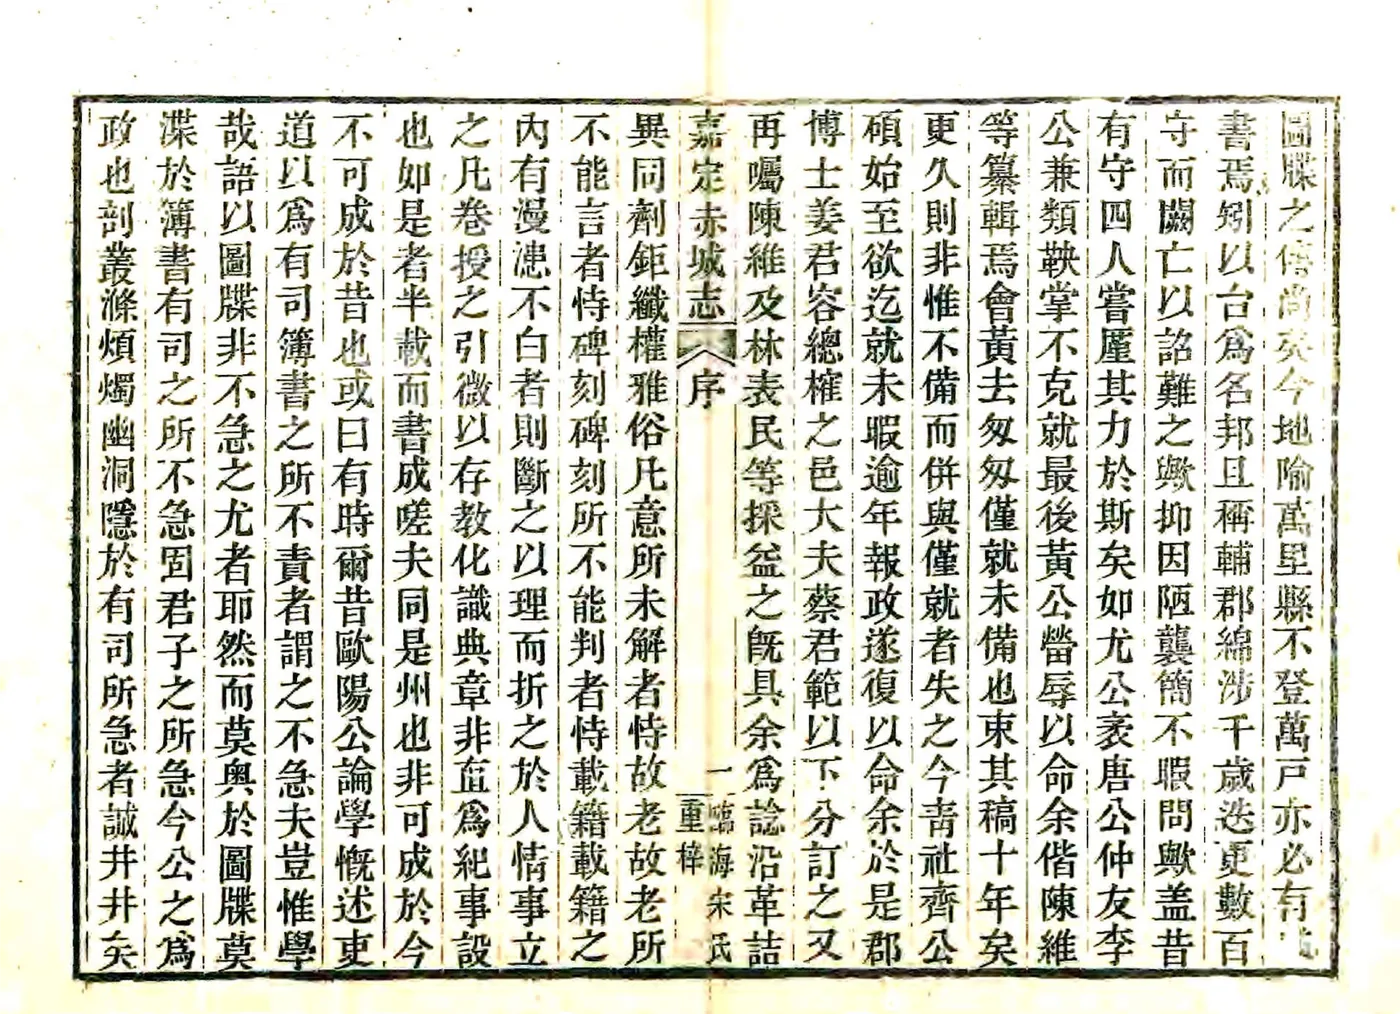 圖牒之傳尚矣今地隃萬里縣不登萬戸亦必有成
書焉矧以台爲名邦且稱輔郡綿涉千歲迭更數百
守而闕亡以詔難之歟抑因陋襲簡不暇問歟盖昔
有守四人嘗厪其力於斯矣如尤公袤唐公仲友李
公兼類鞅掌不克就最後黃公㽦辱以命余偕陳維
等纂輯焉會黃去匆匆僅就未備也束其稿十年矣
更久則非惟不備而併與僅就者失之今青社齊公
碩始至欲迄就未暇逾年報政遂復以命余於是郡
博士姜君容總榷之邑大夫蔡君範以下分訂之又
再囑陳維及林表民等採益之旣具余爲諗沿革詰
嘉定赤城志 序 一 臨海宋氏重梓
異同劑鉅纖權雅俗凡意所未解者恃故老故老所
不能言者恃碑刻碑刻所不能判者恃載籍載籍之
內有漫漶不白者則斷之以理而折之於人情事立
之凡卷授之引微以存教化識典章非直爲紀事設
也如是者半載而書成嗟夫同是州也非可成於今
不可成於昔也或曰有時爾昔歐陽公論學慨述吏
道以爲有司簿書之所不責者謂之不急夫豈惟學
哉語以圖牒非不急之尤者耶然而莫奧於圖牒莫
渫於簿書有司之所不急固君子之所急今公之爲
政也剖叢滌煩燭幽洞隱於有司所急者誠井井矣